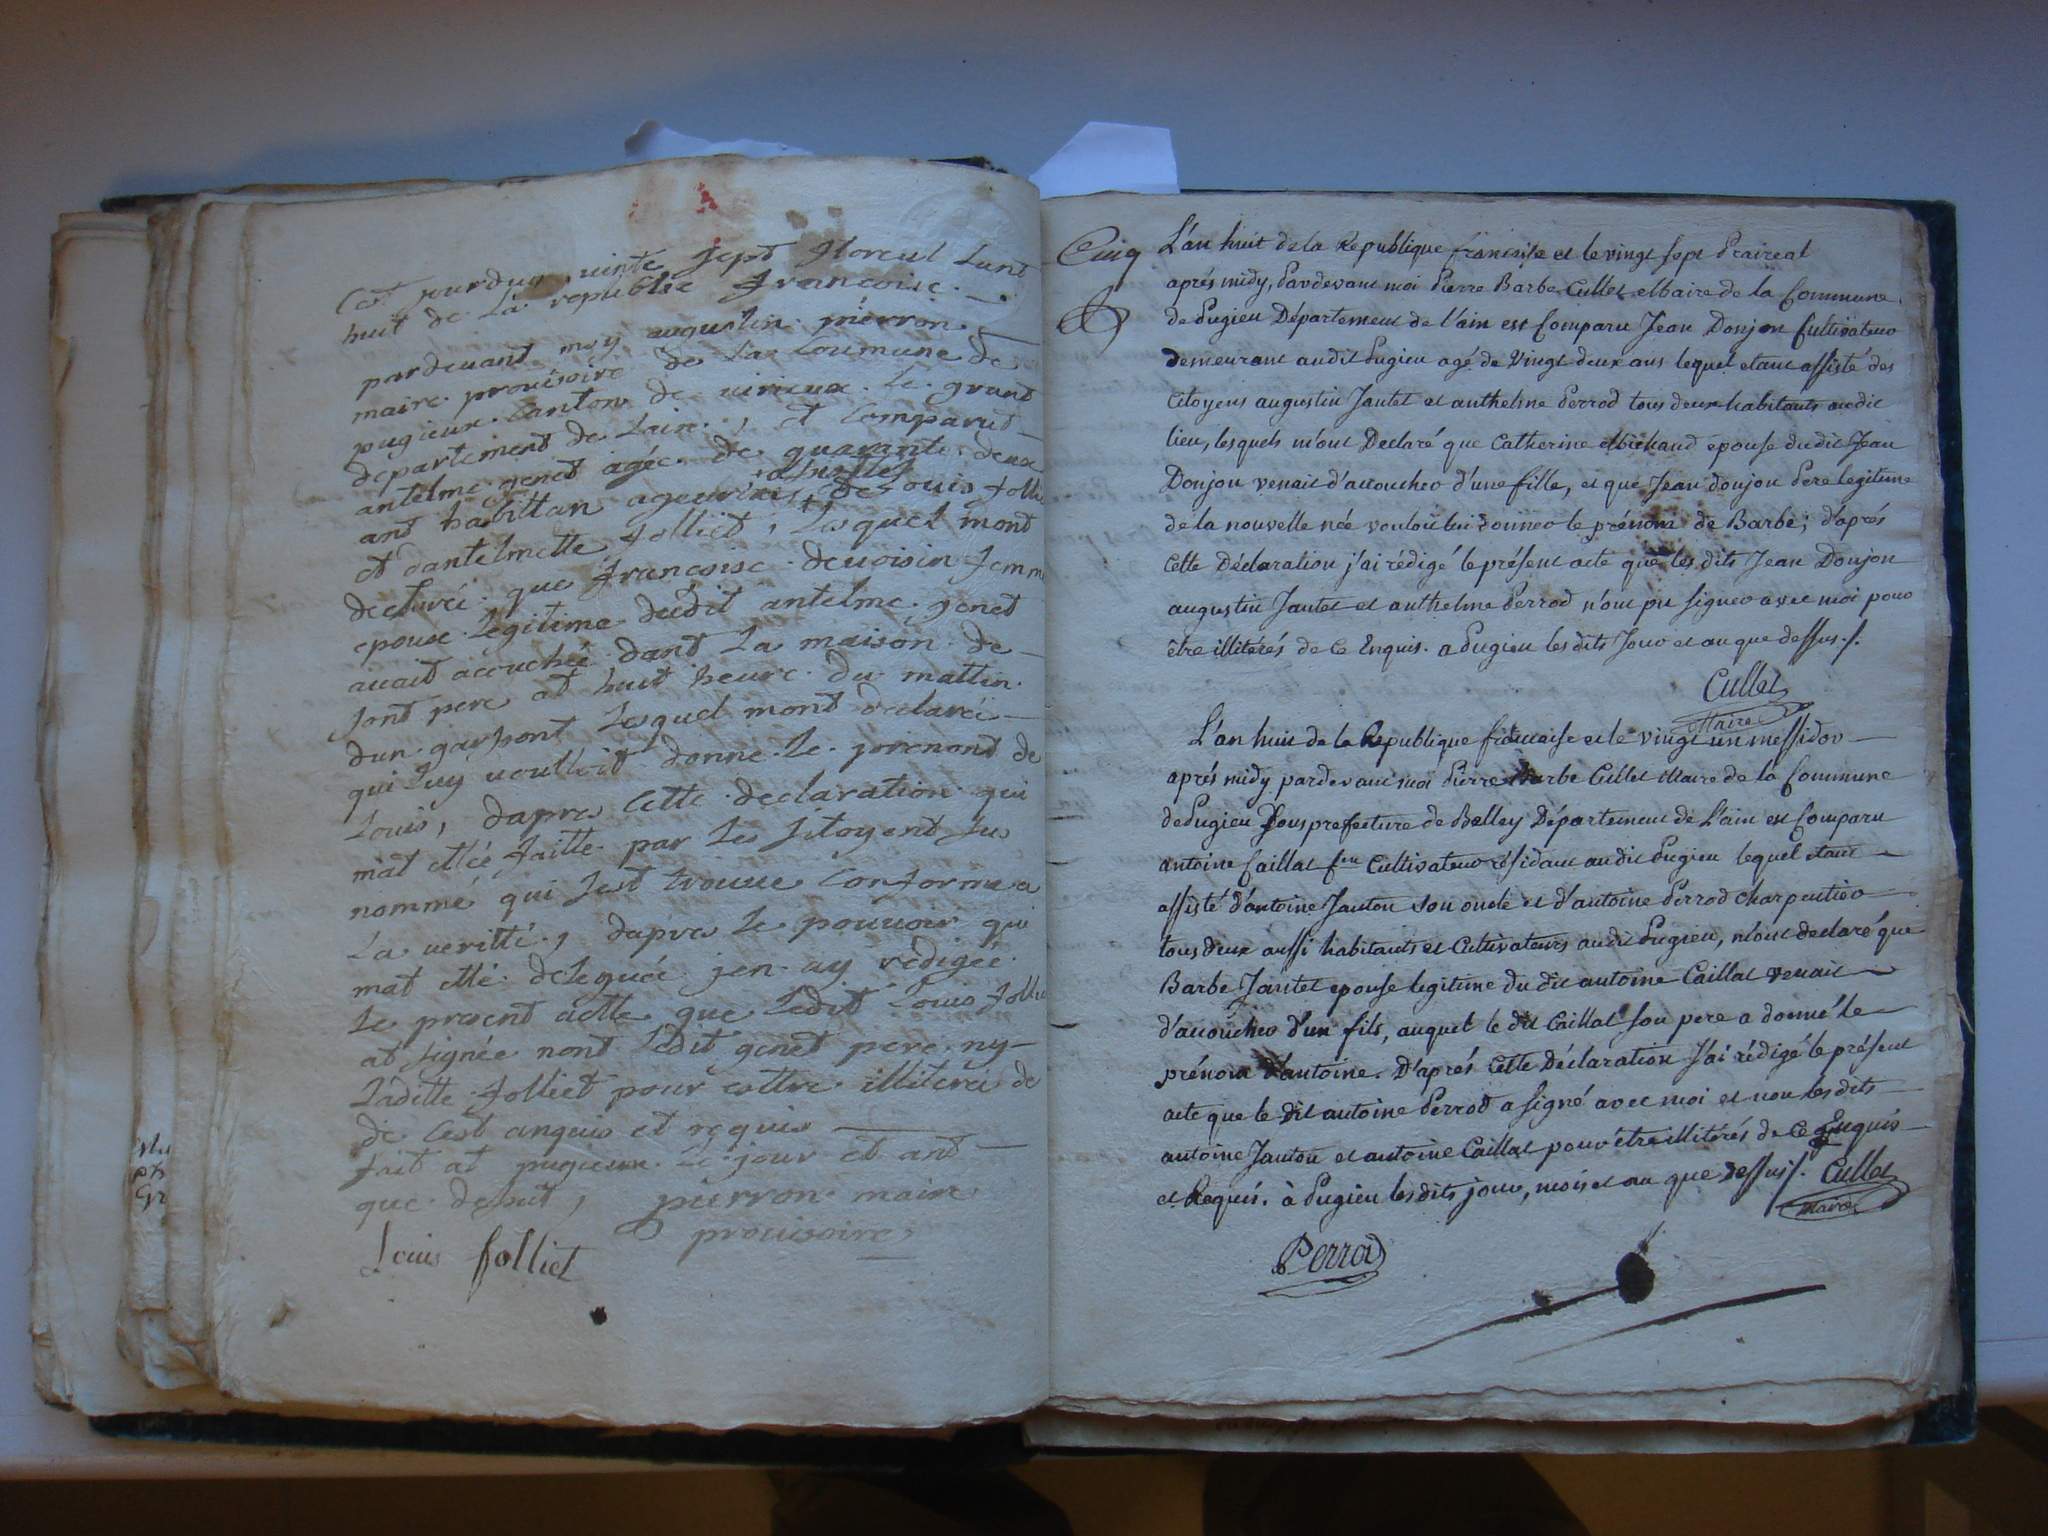 Cest jourduy vinte sept floreal lant
huit de la republic francoise.
pardeuant moy augustin pierron
maire prouisoire de la Coumune de
pugieux Canton de virieux le grant
departement de lain, et Comparut
antelme genet agée de quarante deux
ant habittan assistes de Louis folliet
et dantelmette folliet, lesquel mont
declaréi que francoise deuoisin femme
epouse legitime dudit antelme genet
auait acouchée dant la maison de
sont pere at huit heure du mattin
dun garssont lesquel mont declaréi
qui luy voulloit donne le prenont de
Louis, dapres Cette declaration qui
mat ettée faitte par les sitoyent su
nommé qui sest trouue Conforme a
la veritté, dapres le pouuoir qui
mat etté deleguée jen ay redigée
le present actte que ledit Louis folliet
at signée nont ledit genet pere ny
ladette folliet pour esttre illiterei de
de cest anquis et requis
fait at pugieux le jour et ant
que desut, pierron maire
prouisoire
Louis folliet
Cinq
L'an huit de la Republique francaise et le vingt sept Prairéal
aprés midy, Pardevant moi Pierre Barbe Cullet Maire de la Commune
de Pugieu Département de l'ain est Comparu Jean Donjon Cultivateur
demeurant audit Pugieu agé de Vingt deux ans lequel etant assisté des
Citoyens augustin Jantet et anthelme Perrod tous deux habitants audit
lieu, lesquels m'ont Declaré que Catherine Michaud epouse dudit Jean
Donjon venait d'accoucher d'une fille, et que Jean donjon Pere legitime
de la nouvelle née vouloit lui donner le prénom de Barbe; d'aprés
Cette Déclaration j'ai rédigé le présent acte que les dits Jean Donjon
augustin Jantet et anthelme Perrod n'ont pu signer avec moi pour
être illitérés de ce Enquis. a Pugieu les dits Jour et an que dessus./.
Cullet
Maire
L'an huit de la Republique francaise et le vingt un messidor
aprés midy pardevant moi Pierre Barbe Cullet Maire de la Commune
de Pugieu Sousprefecture de Belley Département de L'ain est Comparu
antoine Caillat feu Cultivateur résidant audit Pugieu lequel etant
assisté d'antoine Janton son oncle et d'antoine Perrod charpentier
tous deux aussi habitants et Cultivateurs audit Pugieu, m'ont declaré que
Barbe Jantet epouse legitime du dit antoine Caillat venait
d'accoucher d'un fils, auquel le dit Caillat son pere a donné le
prénom d'antoine. D'aprés Cette Déclaration J'ai rédigé le présent
acte que le dit antoine Perrod a signé avec moi et non les dits
antoine Janton et antoine Caillat pour être illitérés de ce Enquis
et Requis. à Pugieu les dits jour, mois et an que dessus./. Cullet
maire
Perrod